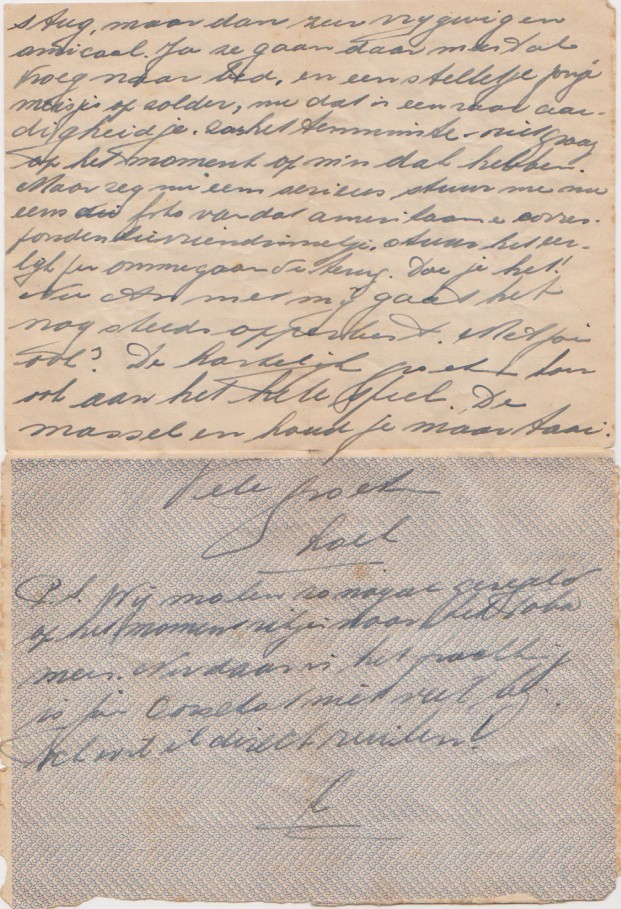 stug, maar dan zeer vrygevig en
amicaal. Ja ze gaan daar meestal
vroeg naar bed, en een stelletje jonge
meisjes op solder, nu dat is een raar aar-
digheidje. Zou het tenminste niet graag
op het moment op m'n dak hebben.
Maar zeg nu eens serieus stuur me nu
eens die foto van dat amerikaanse corres-
pondentievriendinnetje, stuur het eer-
lijk per ommegaande terug. Doe je het!
Nu An met mij gaat het
nog steeds opperbest. Met jou
ook? De hartelijke groeten
ook aan het hele spul. De
massel en houd je maar taai.
Vele groeten
P.S. Wij maken zo nogal geregeld
op het moment ritjes door het Toba
meer. Nu daar is het prachtig
is jou niet veel bij.
Ik wil direct ruilen!